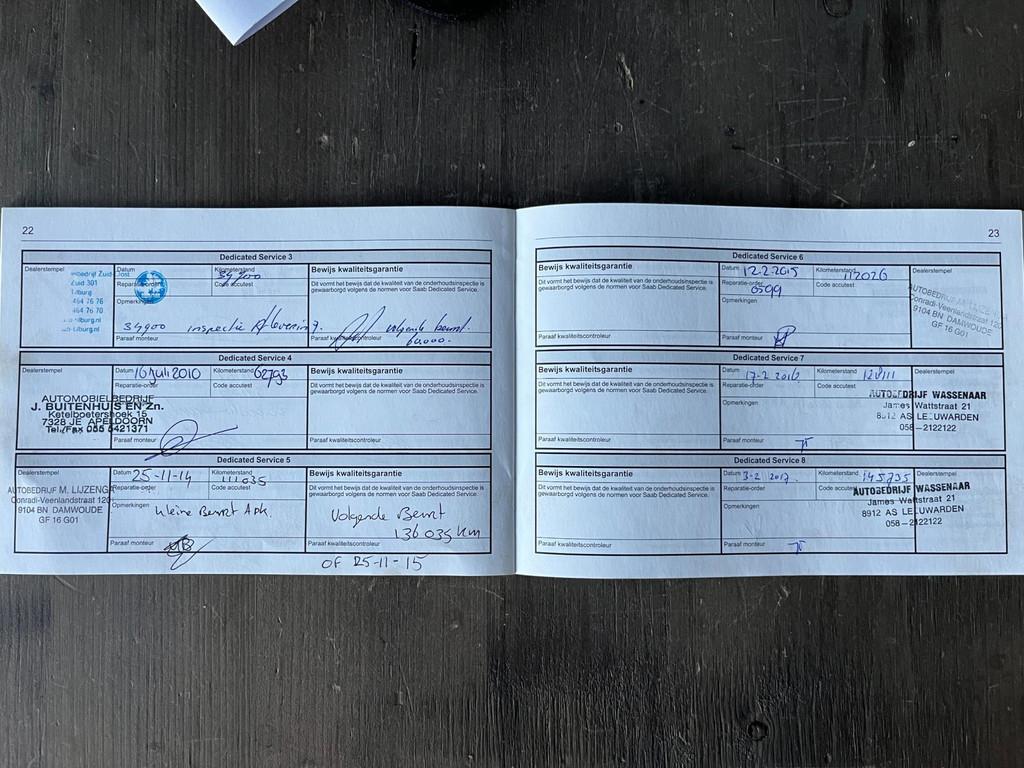 22
Dedicated Service 3
Dealerstempel
Datum
Kilometerstand
34900
Reparatie-order
Code accutest
Opmerkingen
Zuid 301
Tilburg
464 76 76
464 76 70
34900 inspectie Aflevering.
volgende beurt
60.000.-
Paraaf monteur
Bewijs kwaliteitsgarantie
Dit vormt het bewijs dat de kwaliteit van de onderhoudsinspectie is
gewaarborgd volgens de normen voor Saab Dedicated Service.
Paraaf kwaliteitscontroleur
Dedicated Service 4
Dealerstempel
Datum 16 Juli 2010
Kilometerstand 62793
Reparatie-order
Code accutest
AUTOMOBIELBEDRIJF
J. BUITENHUIS EN Zn.
Ketelboetershoek 15
7328 JE APELDOORN
Tel./Fax 055 5421371
Paraaf monteur
Bewijs kwaliteitsgarantie
Dit vormt het bewijs dat de kwaliteit van de onderhoudsinspectie is
gewaarborgd volgens de normen voor Saab Dedicated Service.
Paraaf kwaliteitscontroleur
Dedicated Service 5
Dealerstempel
Datum 25-11-14
Kilometerstand 111035
Reparatie-order
Code accutest
AUTOBEDRIJF M. LIJZENGA
Conradi-Veenlandstraat 120
9104 BN DAMWOUDE
GF 16 G01
Opmerkingen Kleine Beurt Apk.
Paraaf monteur
Bewijs kwaliteitsgarantie
Dit vormt het bewijs dat de kwaliteit van de onderhoudsinspectie is
gewaarborgd volgens de normen voor Saab Dedicated Service.
Volgende Beurt
136035 km
Paraaf kwaliteitscontroleur
OF 25-11-15
23
Dedicated Service 6
Bewijs kwaliteitsgarantie
Dit vormt het bewijs dat de kwaliteit van de onderhoudsinspectie is
gewaarborgd volgens de normen voor Saab Dedicated Service.
Paraaf kwaliteitscontroleur
Datum 12-2-2015
Kilometerstand 112026
Reparatie-order
6599
Code accutest
Opmerkingen
Paraaf monteur
Dealerstempel
AUTOBEDRIJF M. LIJZENGA
Conradi-Veenlandstraat 120
9104 BN DAMWOUDE
GF 16 G01
Dedicated Service 7
Bewijs kwaliteitsgarantie
Dit vormt het bewijs dat de kwaliteit van de onderhoudsinspectie is
gewaarborgd volgens de normen voor Saab Dedicated Service.
Paraaf kwaliteitscontroleur
Datum 17-2 2016
Kilometerstand
Reparatie-order
Code accutest
Opmerkingen
Paraaf monteur
Dealerstempel
AUTOBEDRIJF WASSENAAR
James Wattstraat 21
8912 AS LEEUWARDEN
058-2122122
Dedicated Service 8
Bewijs kwaliteitsgarantie
Dit vormt het bewijs dat de kwaliteit van de onderhoudsinspectie is
gewaarborgd volgens de normen voor Saab Dedicated Service.
Paraaf kwaliteitscontroleur
Datum 3-2 2017
Kilometerstand
Reparatie-order
Code accutest
Opmerkingen
Paraaf monteur
Dealerstempel
AUTOBEDRIJF WASSENAAR
James Wattstraat 21
8912 AS LEEUWARDEN
058-2122122